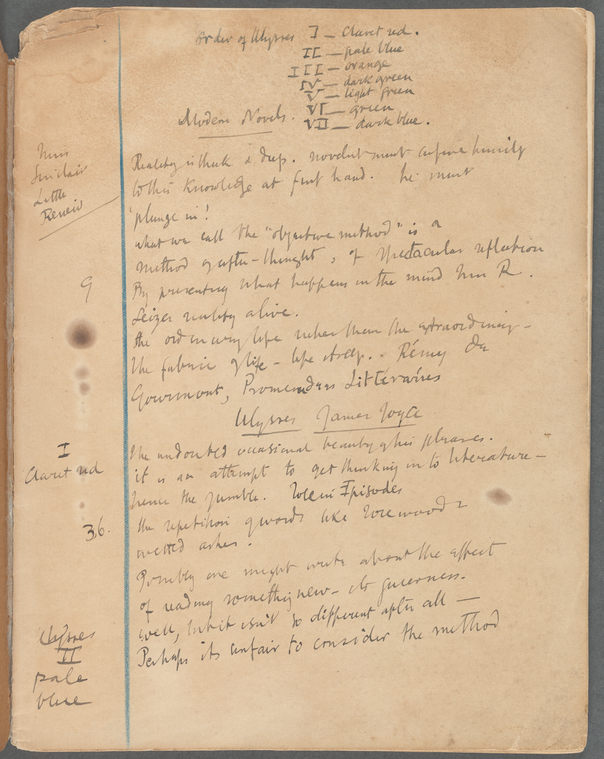 Order of Ulysses I — Claret red.
II — pale blue
III — orange
IV — dark green
V — light green
VI — green
VII — dark blue.
Modern Novels.
Miss
Sinclair
Little
Review
Reality is thick & deep. novelist must confine himself
to this knowledge at first hand. he must
'plunge in'!
what we call the "objective method" is a
method of after-thought, of spectacular reflection
By presenting what happens in the mind Miss R.
seizes reality alive.
9
the ordinary life rather than the extraordinary –
the fabric of life – life itself. . Rémy de
Gourmont, Promenades Littéraires
Ulysses James Joyce
I
Claret red
The undoubted occasional beauty of his phrases.
it is an attempt to get thinking in to literature –
hence the jumble. Told in Episodes
36.
the repetition of words like rosewood &
wetted ashes.
Possibly one might write about the effect
of reading something new – its queerness.
well, but it isn't so different after all —
Perhaps its unfair to consider the method
Ulysses
II
pale
blue